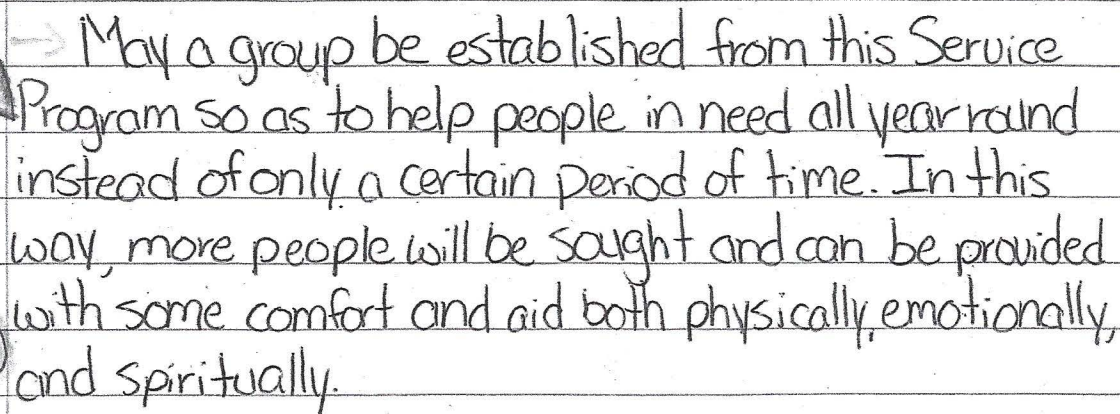 → May a group be established from this Service
Program so as to help people in need all year round
instead of only a certain period of time. In this
way, more people will be sought and can be provided
with some comfort and aid both physically, emotionally,
and spiritually.